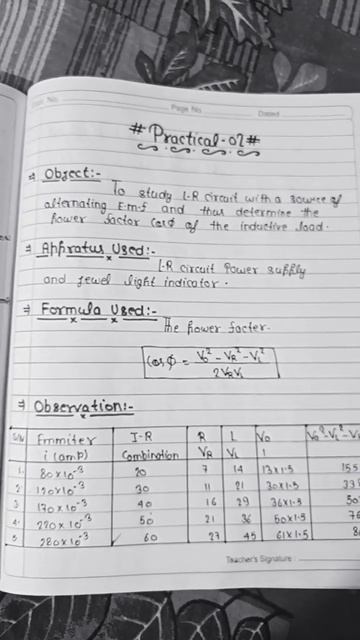 Page No
Dated
# Practical-02 #
⇒ Object:-
To study L-R circuit with a source of
alternating E.m.f and thus determine the
power factor cosφ of the inductive load.
⇒ Appratus Used:-
L-R circuit Power supply
and jewel light indicator.
⇒ Formula Used:-
The power facter.
Cos φ = V₀² - VR² - VL² / 2VRVL
⇒ Observation:-
S/N Emmiter i (amp) I-R Combination R VR L VL V₀ 1
1. 80x10⁻³ 20 7 14 13x1.5 155
2. 120x10⁻³ 30 11 21 30x1.5
3. 170x10⁻³ 40 16 29 36x1.5
4. 220x10⁻³ 50 21 36 50x1.5
5. 280x10⁻³ 60 27 45 61x1.5
Teacher's Signature